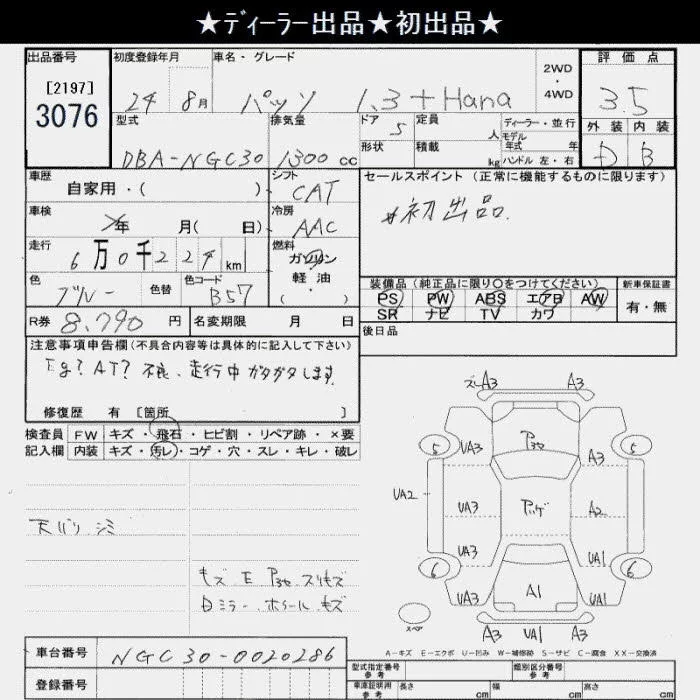 ★ディーラー出品★初出品★
出品番号 初度登録年月 車名・グレード 2WD・4WD 評価点
[2197]
3076
24 8月 パッソ 1.3 +Hana 3.5
型式 排気量 ドア 定員 人 ディーラー・並行 外装 内装
モデル年式 年式
DBA-NGC30 1300 cc 5 D B
形状 積載 kg ハンドル 左・右
車歴 シフト セールスポイント (正常に機能するものに限ります)
自家用・( ) CAT
#初出品.
車検 年 月( 日) 冷房 AAC
走行 6万0千224km 燃料 ガソリン
軽油
( ・ )
色 ブルー 色替 色コード B57
装備品(純正品に限り○をつけてください) 新車保証書
PS PW ABS エアB AW 有・無
SR ナビ TV カワ
R券 8,790円 名変期限 月 日
後日品
注意事項申告欄(不具合内容等は具体的に記入して下さい)
Eg? AT? 不良、走行中ガタガタします.
修復歴 有 [箇所 ]
検査員 FW キズ・飛石・ヒビ割・リペア跡・×要
記入欄 内装 キズ・汚レ・コゲ・穴・スレ・キレ・破レ
天バリ シミ
Dミラー. ホイール. キズ
ズレA3 A3
5 UA3 A3 5
UA2 UA3 A2
UA3 UA1
6 6
UA3 A1 UA1
スペア
A3 UA1 A3
A-キズ E-エクボ U-凹み W-補修跡 S-サビ C-腐食 XX-交換済
車台番号 NGC30-0020286
登録番号
型式指定番号 参考 類別区分番号 参考
車庫証明用 参考 長さ cm 幅 cm 高さ cm